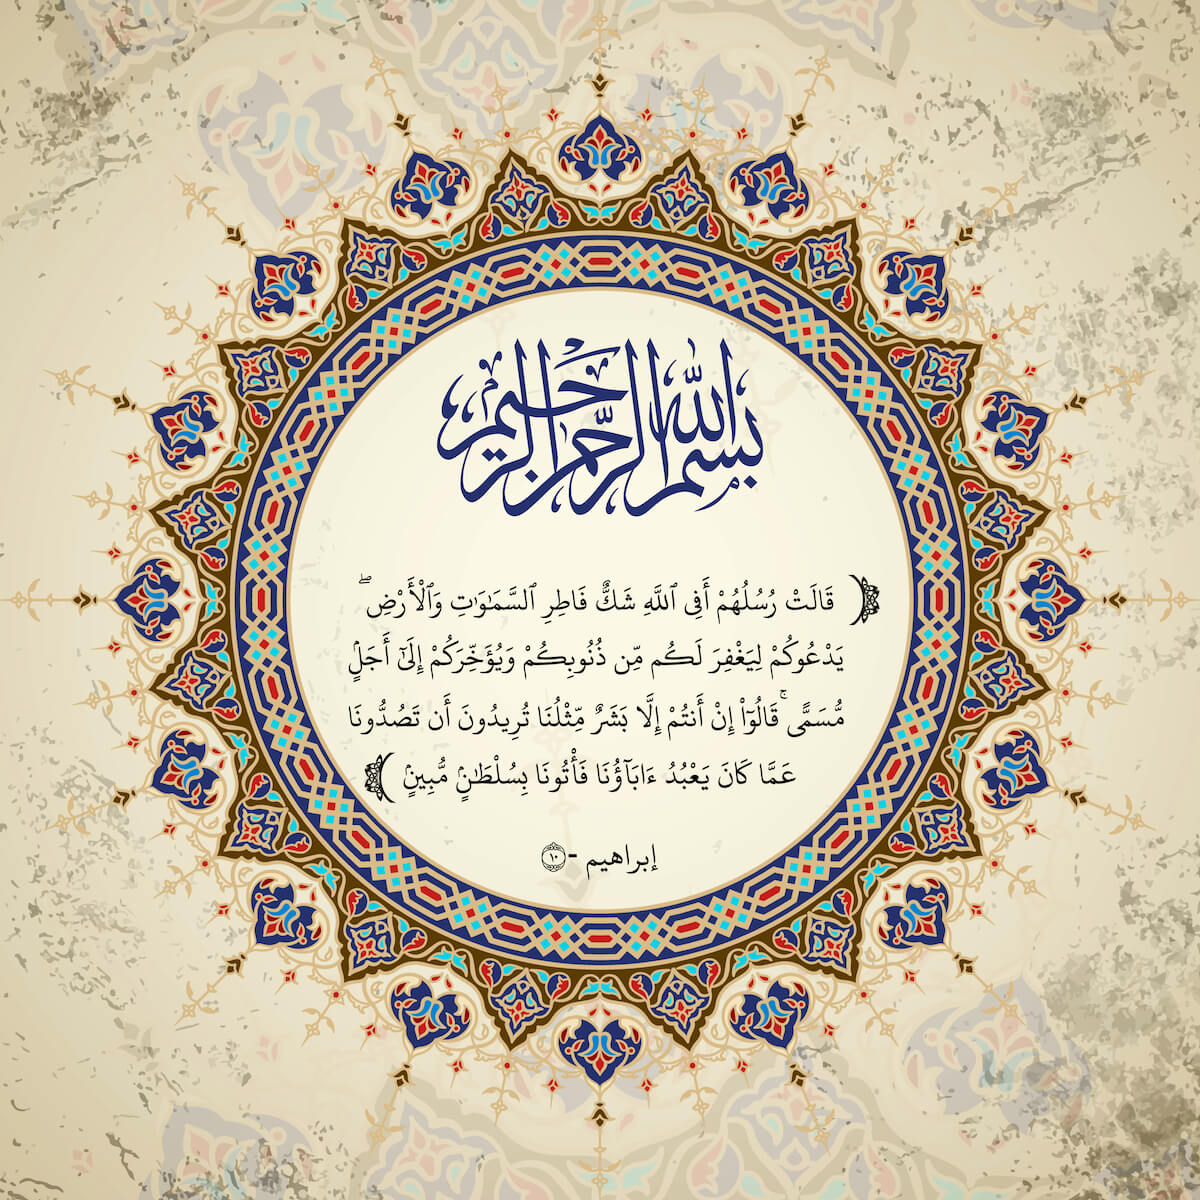 بسم الله الرحمن الرحيم
قَالَتْ رُسُلُهُمْ أَفِى ٱللَّهِ شَكٌّ فَاطِرِ ٱلسَّمَـٰوَٰتِ وَٱلْأَرْضِ ۖ
يَدْعُوكُمْ لِيَغْفِرَ لَكُم مِّن ذُنُوبِكُمْ وَيُؤَخِّرَكُمْ إِلَىٰٓ أَجَلٍ
مُّسَمًّى ۚ قَالُوٓا۟ إِنْ أَنتُمْ إِلَّا بَشَرٌ مِّثْلُنَا تُرِيدُونَ أَن تَصُدُّونَا
عَمَّا كَانَ يَعْبُدُ ءَابَآؤُنَا فَأْتُونَا بِسُلْطَـٰنٍ مُّبِينٍ
إبراهيم - ١٠